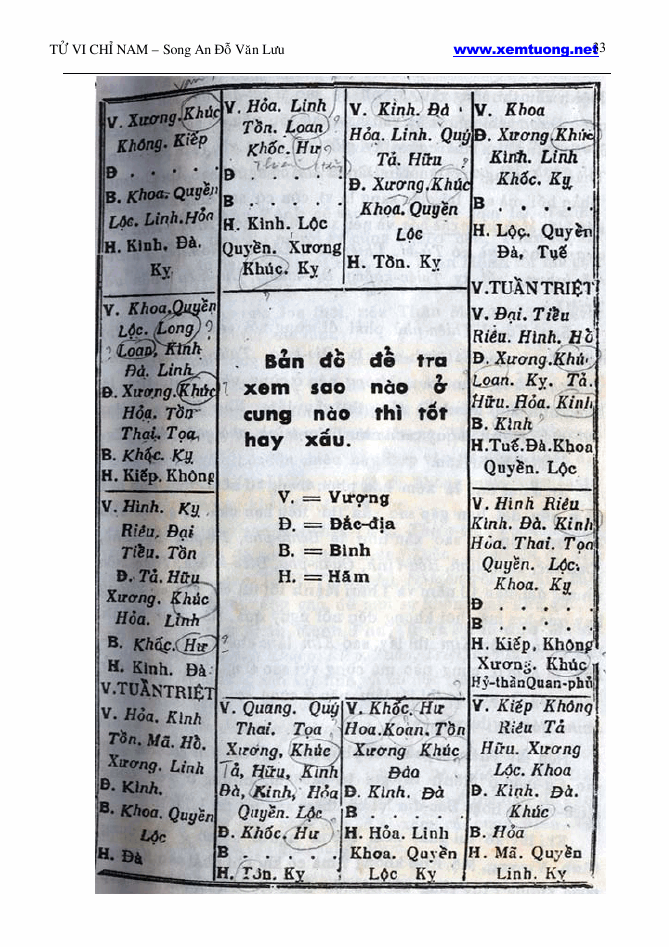 TỬ VI CHỈ NAM – Song An Đỗ Văn Lưu
www.xemtuong.net
V. Xương. Khúc
Không. Kiếp
Đ . . . . .
B. Khoa. Quyền
Lộc. Linh. Hỏa
H. Kình. Đà.
Kỵ
V. Hỏa. Linh
Tồn. Loan
Khốc. Hư
Đ
B . . . . .
H. Kình. Lộc
Quyền. Xương
Khúc. Kỵ
V. Kình. Đà
Hỏa. Linh. Quý
Tả. Hữu
Đ. Xương. Khúc
Khoa. Quyền
Lộc
H. Tồn. Kỵ
V. Khoa
Đ. Xương. Khúc
Kình. Linh
Khốc. Kỵ
B . . . . .
H. Lộc. Quyền
Đà, Tuế
V. TUẦN TRIỆT
V. Khoa. Quyền
Lộc. Long
Loan, Kình
Đà. Linh
Đ. Xương. Khúc
Hỏa. Tồn
Thai. Tọa,
B. Khốc. Kỵ
H. Kiếp. Không
Bản đồ để tra
xem sao nào ở
cung nào thì tốt
hay xấu.
V. = Vượng
Đ. = Đắc-địa
B. = Bình
H. = Hãm
V. Đại. Tiều
Riêu. Hình. Hồ
Đ. Xương. Khúc
Loan. Kỵ. Tả.
Hữu. Hỏa. Kình
B. Kình
H. Tuế. Đà. Khoa
Quyền. Lộc
V. Hình. Kỵ
Riêu. Đại
Tiều. Tồn
Đ. Tả. Hữu
Xương. Khúc
Hỏa. Linh
B. Khốc. Hư
H. Kình. Đà
V. TUẦN TRIỆT
V. Hình Riêu
Kình. Đà. Kình
Hỏa. Thai. Tọa
Quyền. Lộc.
Khoa. Kỵ
Đ . . . . .
B . . . . .
H. Kiếp, Không
Xương. Khúc
Hỷ-thần Quan-phủ
V. Hỏa. Kình
Tồn. Mã. Hồ.
Xương. Linh
Đ. Kình.
B. Khoa. Quyền
Lộc
H. Đà
V. Quang. Quý
Thai. Tọa
Xương, Khúc
Tả, Hữu, Kình
Đà, Kình, Hỏa
Quyền. Lộc
Đ. Khốc. Hư
B . . . . .
H. Tồn. Kỵ
V. Khốc. Hư
Hoa. Koan. Tồn
Xương Khúc
Đào
Đ. Kình. Đà
B . . . . .
H. Hỏa. Linh
Khoa. Quyền
Lộc Kỵ
V. Kiếp Không
Riêu Tả
Hữu. Xương
Lộc. Khoa
Đ. Kình. Đà.
Khúc
B. Hỏa
H. Mã. Quyền
Linh. Kỵ